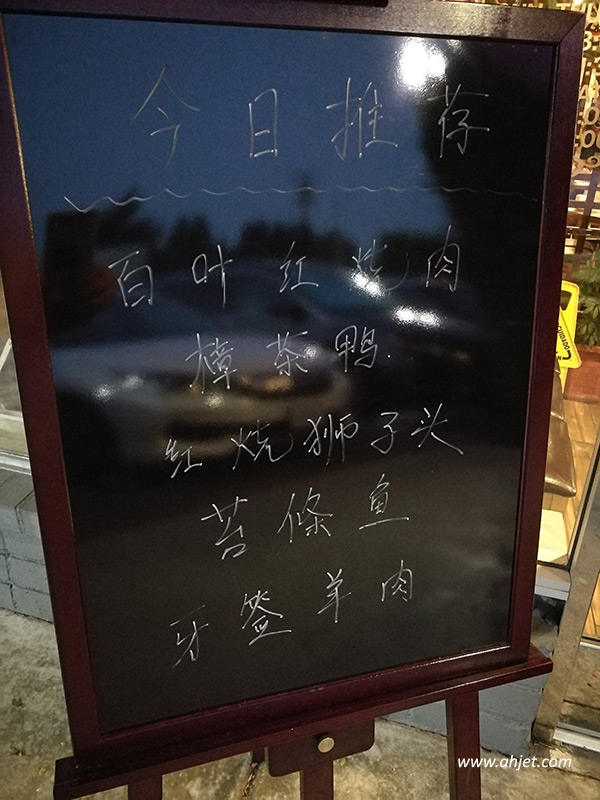 今日推荐
百叶红烧肉
樟茶鸭.
红烧狮子头
苔條鱼
牙签羊肉
CUIDADO
www.ahjet.com